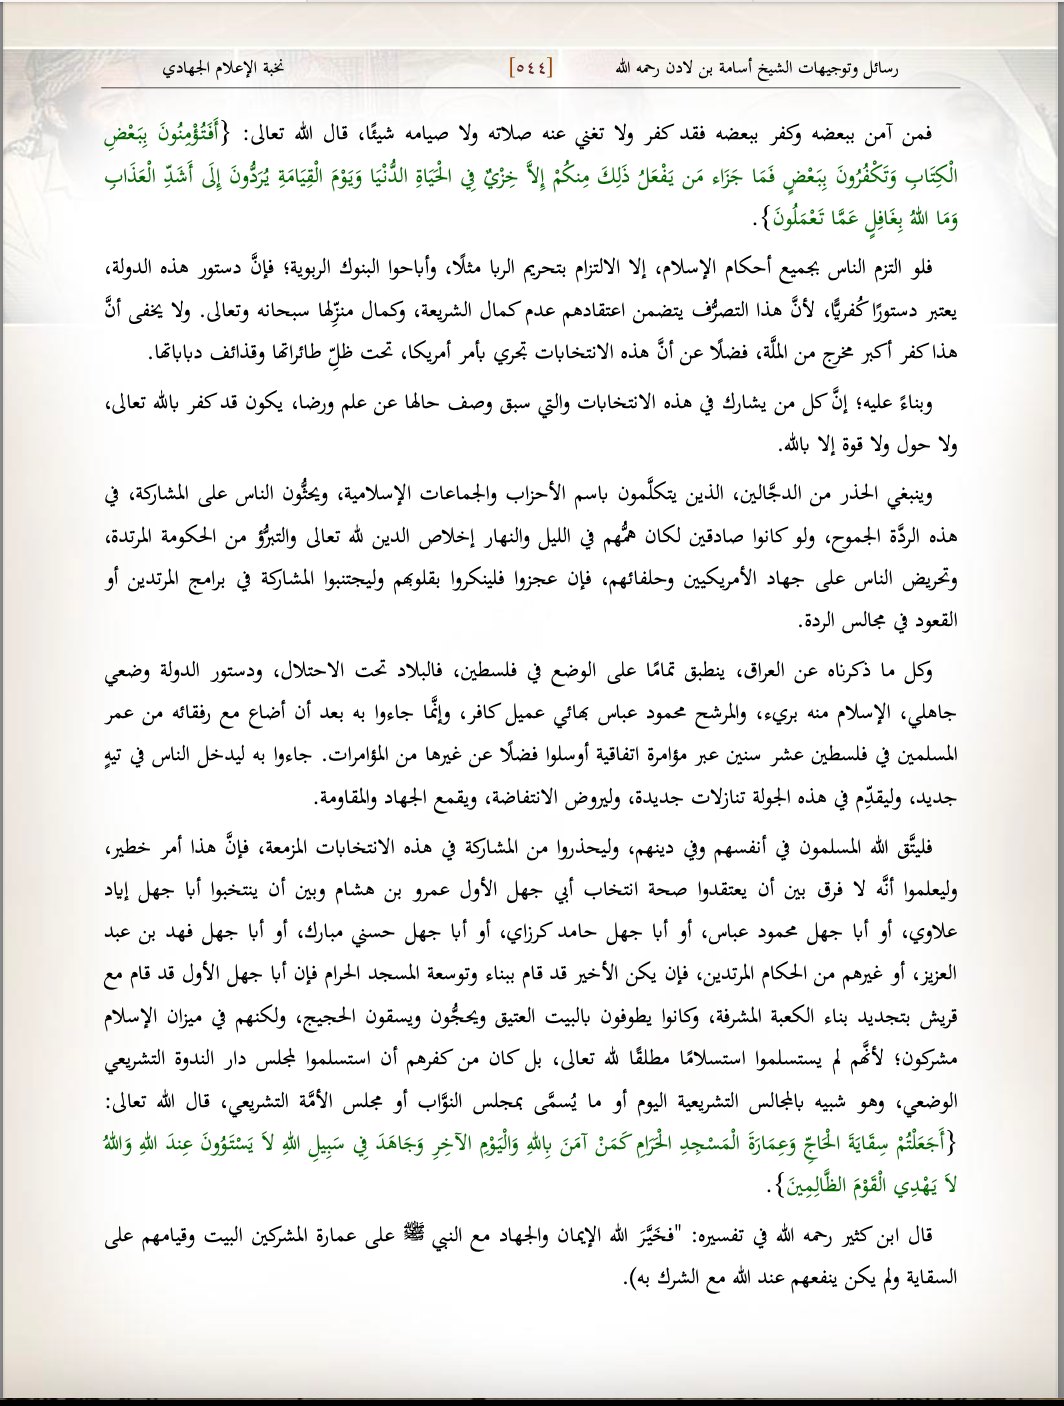 رسائل وتوجيهات الشيخ أسامة بن لادن رحمه الله [٥٤٤] نخبة الإعلام الجهادي
فمن آمن ببعضه وكفر ببعضه فقد كفر ولا تغني عنه صلاته ولا صيامه شيئًا، قال الله تعالى: {أَفَتُؤْمِنُونَ بِبَعْضِ
الْكِتَابِ وَتَكْفُرُونَ بِبَعْضٍ فَمَا جَزَاء مَن يَفْعَلُ ذَلِكَ مِنكُمْ إِلاَّ خِزْيٌ فِي الْحَيَاةِ الدُّنْيَا وَيَوْمَ الْقِيَامَةِ يُرَدُّونَ إِلَى أَشَدِّ الْعَذَابِ
وَمَا اللهُ بِغَافِلٍ عَمَّا تَعْمَلُونَ}.
فلو التزم الناس بجميع أحكام الإسلام، إلا الالتزام بتحريم الربا مثلًا، وأباحوا البنوك الربوية؛ فإنَّ دستور هذه الدولة،
يعتبر دستورًا كُفريًّا، لأنَّ هذا التصرُّف يتضمن اعتقادهم عدم كمال الشريعة، وكمال منزِّلها سبحانه وتعالى. ولا يخفى أنَّ
هذا كفر أكبر مخرج من الملَّة، فضلًا عن أنَّ هذه الانتخابات تجري بأمر أمريكا، تحت ظلِّ طائراتها وقذائف دباباتها.
وبناءً عليه؛ إنَّ كل من يشارك في هذه الانتخابات والتي سبق وصف حالها عن علم ورضا، يكون قد كفر بالله تعالى،
ولا حول ولا قوة إلا بالله.
وينبغي الحذر من الدجَّالين، الذين يتكلَّمون باسم الأحزاب والجماعات الإسلامية، ويحثُّون الناس على المشاركة، في
هذه الردَّة الجموح، ولو كانوا صادقين لكان همُّهم في الليل والنهار إخلاص الدين لله تعالى والتبرُّؤ من الحكومة المرتدة،
وتحريض الناس على جهاد الأمريكيين وحلفائهم، فإن عجزوا فلينكروا بقلوبهم وليجتنبوا المشاركة في برامج المرتدين أو
القعود في مجالس الردة.
وكل ما ذكرناه عن العراق، ينطبق تمامًا على الوضع في فلسطين، فالبلاد تحت الاحتلال، ودستور الدولة وضعي
جاهلي، الإسلام منه بريء، والمرشح محمود عباس بهائي عميل كافر، وإنَّما جاءوا به بعد أن أضاع مع رفقائه من عمر
المسلمين في فلسطين عشر سنين عبر مؤامرة اتفاقية أوسلوا فضلًا عن غيرها من المؤامرات. جاءوا به ليدخل الناس في تيهٍ
جديد، وليقدِّم في هذه الجولة تنازلات جديدة، وليروض الانتفاضة، ويقمع الجهاد والمقاومة.
فليتَّق الله المسلمون في أنفسهم وفي دينهم، وليحذروا من المشاركة في هذه الانتخابات المزمعة، فإنَّ هذا أمر خطير،
وليعلموا أنَّه لا فرق بين أن يعتقدوا صحة انتخاب أبي جهل الأول عمرو بن هشام وبين أن ينتخبوا أبا جهل إياد
علاوي، أو أبا جهل محمود عباس، أو أبا جهل حامد كرزاي، أو أبا جهل حسني مبارك، أو أبا جهل فهد بن عبد
العزيز، أو غيرهم من الحكام المرتدين، فإن يكن الأخير قد قام ببناء وتوسعة المسجد الحرام فإن أبا جهل الأول قد قام مع
قريش بتجديد بناء الكعبة المشرفة، وكانوا يطوفون بالبيت العتيق ويحجُّون ويسقون الحجيج، ولكنهم في ميزان الإسلام
مشركون؛ لأنَّهم لم يستسلموا استسلامًا مطلقًا لله تعالى، بل كان من كفرهم أن استسلموا لمجلس دار الندوة التشريعي
الوضعي، وهو شبيه بالمجالس التشريعية اليوم أو ما يُسمَّى بمجلس النوَّاب أو مجلس الأمَّة التشريعي، قال الله تعالى:
{أَجَعَلْتُمْ سِقَايَةَ الْحَاجِّ وَعِمَارَةَ الْمَسْجِدِ الْحَرَامِ كَمَنْ آمَنَ بِاللهِ وَالْيَوْمِ الآخِرِ وَجَاهَدَ فِي سَبِيلِ اللهِ لاَ يَسْتَوُونَ عِندَ اللهِ وَاللهُ
لاَ يَهْدِي الْقَوْمَ الظَّالِمِينَ}.
قال ابن كثير رحمه الله في تفسيره: "فخَيَّرَ الله الإيمان والجهاد مع النبي ﷺ على عمارة المشركين البيت وقيامهم على
السقاية ولم يكن ينفعهم عند الله مع الشرك به).